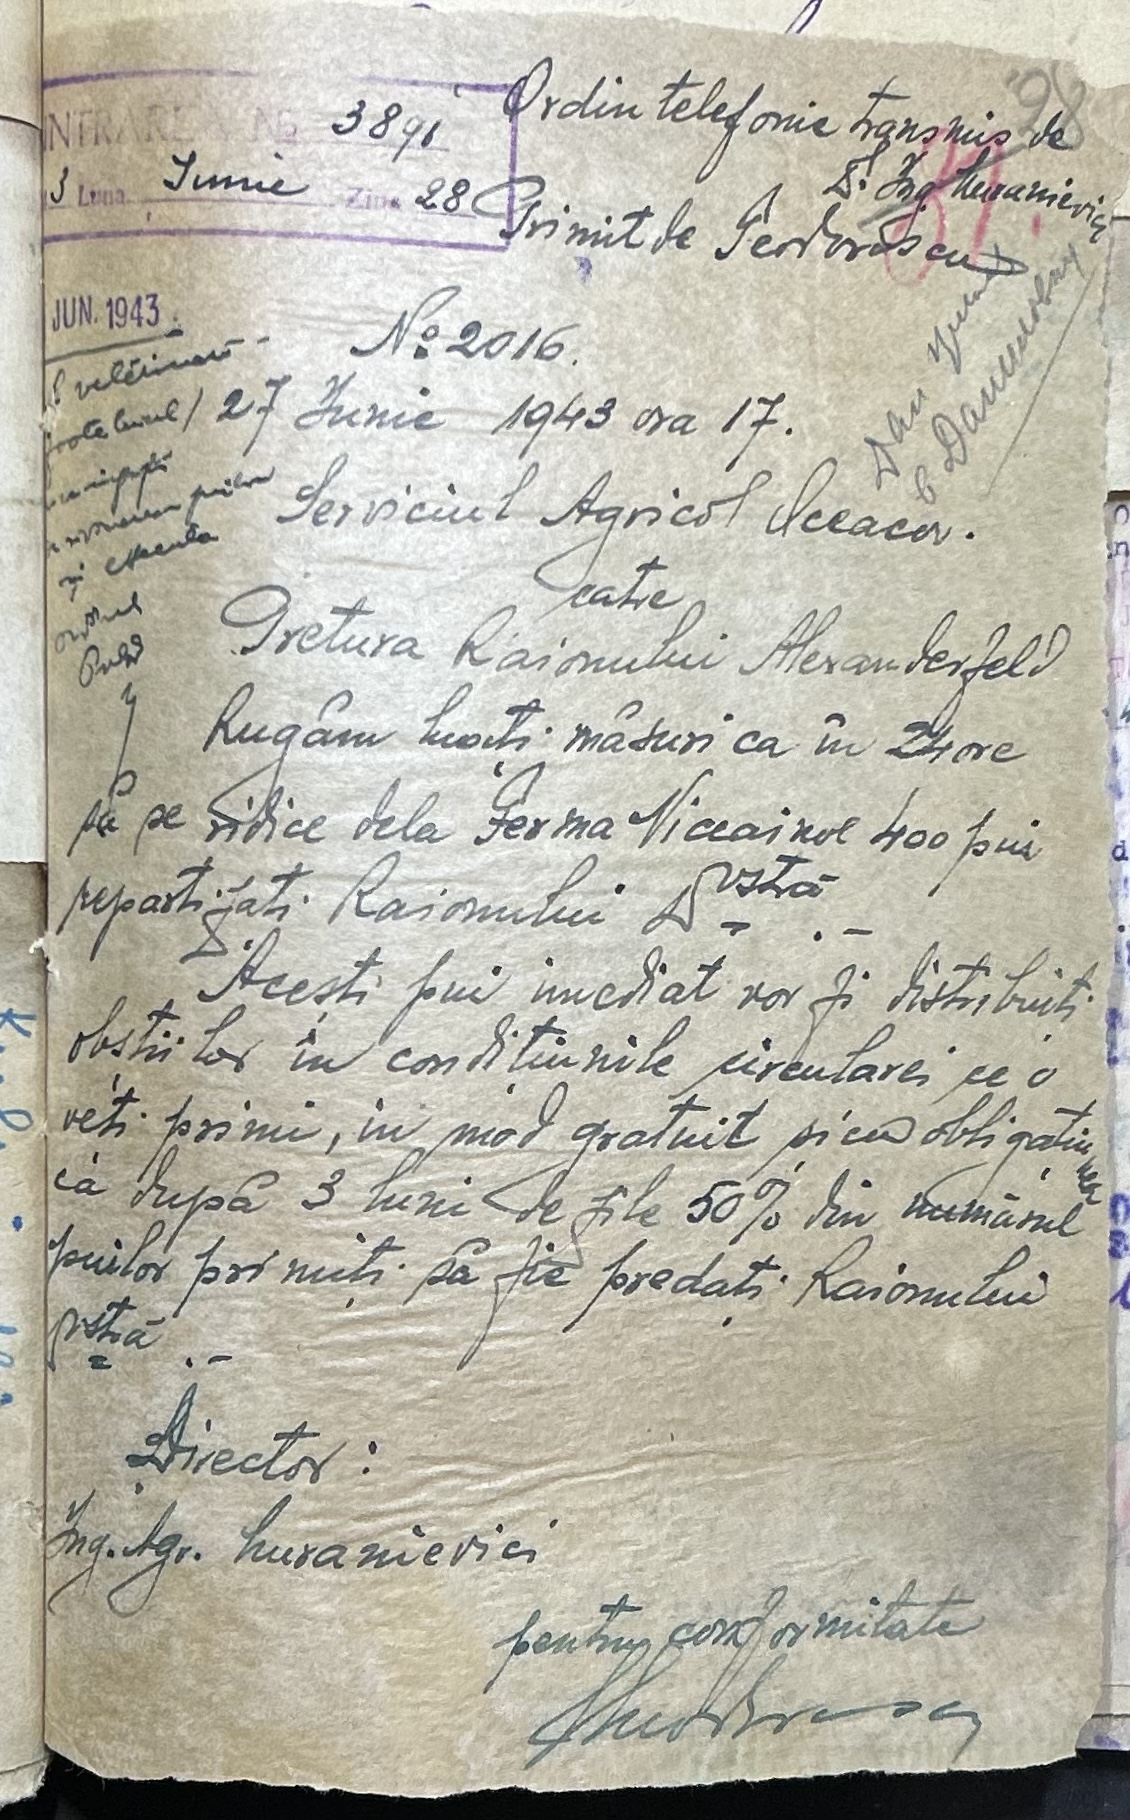 INTRARE No 3891
3 Luna Iunie Ziua 28
JUN. 1943
98
Ordin telefonic transmis de
Dl. Ing. Luxanievici
Primit de Teodorescu
No 2016.
27 Iunie 1943 ora 17.
Serviciul Agricol Oceacov.
catre
Pretura Raionului Alexanderfeld
Rugăm luați măsuri ca în 24 ore
să se ridice dela Ferma 400 pui
repartizați Raionului Dvstră
Acești pui imediat vor fi distribuiți
obștiilor în condițiunile circularei ce o
veți primi, în mod gratuit și cu obligațiunea
că după 3 luni de zile 50% din numărul
puilor primiți să fie predați Raionului
Dvstră
Director:
Ing. Agr. Luxanievici
pentru conformitate
ordinul